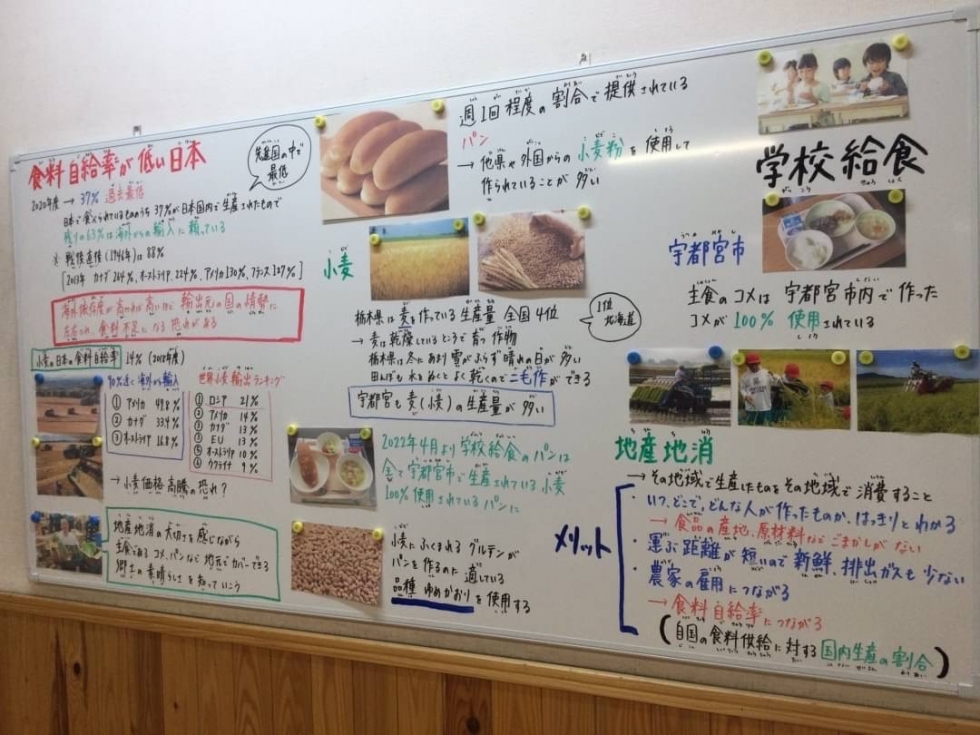 学校給食
宇都宮市
主食のコメは宇都宮市内で作った
コメが100%使用されている
地産地消
→その地域で生産したものをその地域で消費すること
メリット
・いつ、どこで、どんな人が作ったものか、はっきりとわかる
→食品の産地、原材料などごまかしがない
・運ぶ距離が短いので新鮮、排出ガスも少ない
・農家の雇用につながる
→食料自給率につながる
(自国の食料供給に対する国内生産の割合)
週1回程度の割合で提供されている
パン
→他県や外国からの小麦粉を使用して
作られていることが多い
小麦
栃木県は麦を作っている生産量全国4位
1位
北海道
→麦は乾燥しているところで育つ作物
栃木県は冬にあまり雪がふらず晴れの日が多い
田んぼも水をぬくとよく乾くので二毛作ができる
宇都宮も麦(小麦)の生産量が多い
2022年4月より学校給食のパンは
全て宇都宮市で生産されている小麦
100%使用されているパンに
小麦にふくまれるグルテンが
パンを作るのに適している
品種 ゆめかおりを使用する
食料自給率が低い日本
先進国の中で
最低
2020年度→37% 過去最低
日本で食べられているもののうち37%が日本国内で生産されたもので
残りの63%は海外からの輸入に頼っている
※戦後直後(1946年)は88%
海外依存度が高ければ高いほど輸出元の国の情勢に
左右され、食料不足になる恐れがある
小麦の日本の食料自給率
90%近く海外から輸入
① アメリカ 49.8%
② カナダ 33.4%
③ オーストラリア 16.8%
世界小麦輸出ランキング
① ロシア 21%
② アメリカ 14%
③ カナダ 13%
③ EU 13%
⑤ 10%
⑥ ウクライナ 9%
→小麦価格高騰の恐れ?
地産地消の大切さを感じながら
主食であるコメ、パンなど地元でカバーできる
郷土の素晴らしさを知っていこう